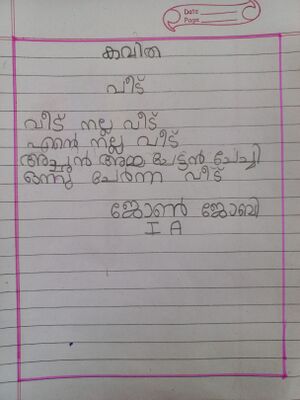 Date
Page
കവിത
വീട്
വീട് നല്ല വീട്
എന്റെ നല്ല വീട്
അച്ഛൻ അമ്മ ചേട്ടൻ ചേച്ചി
ഒന്നു ചേർന്ന വീട്
ജോൺ ജോബി
I A